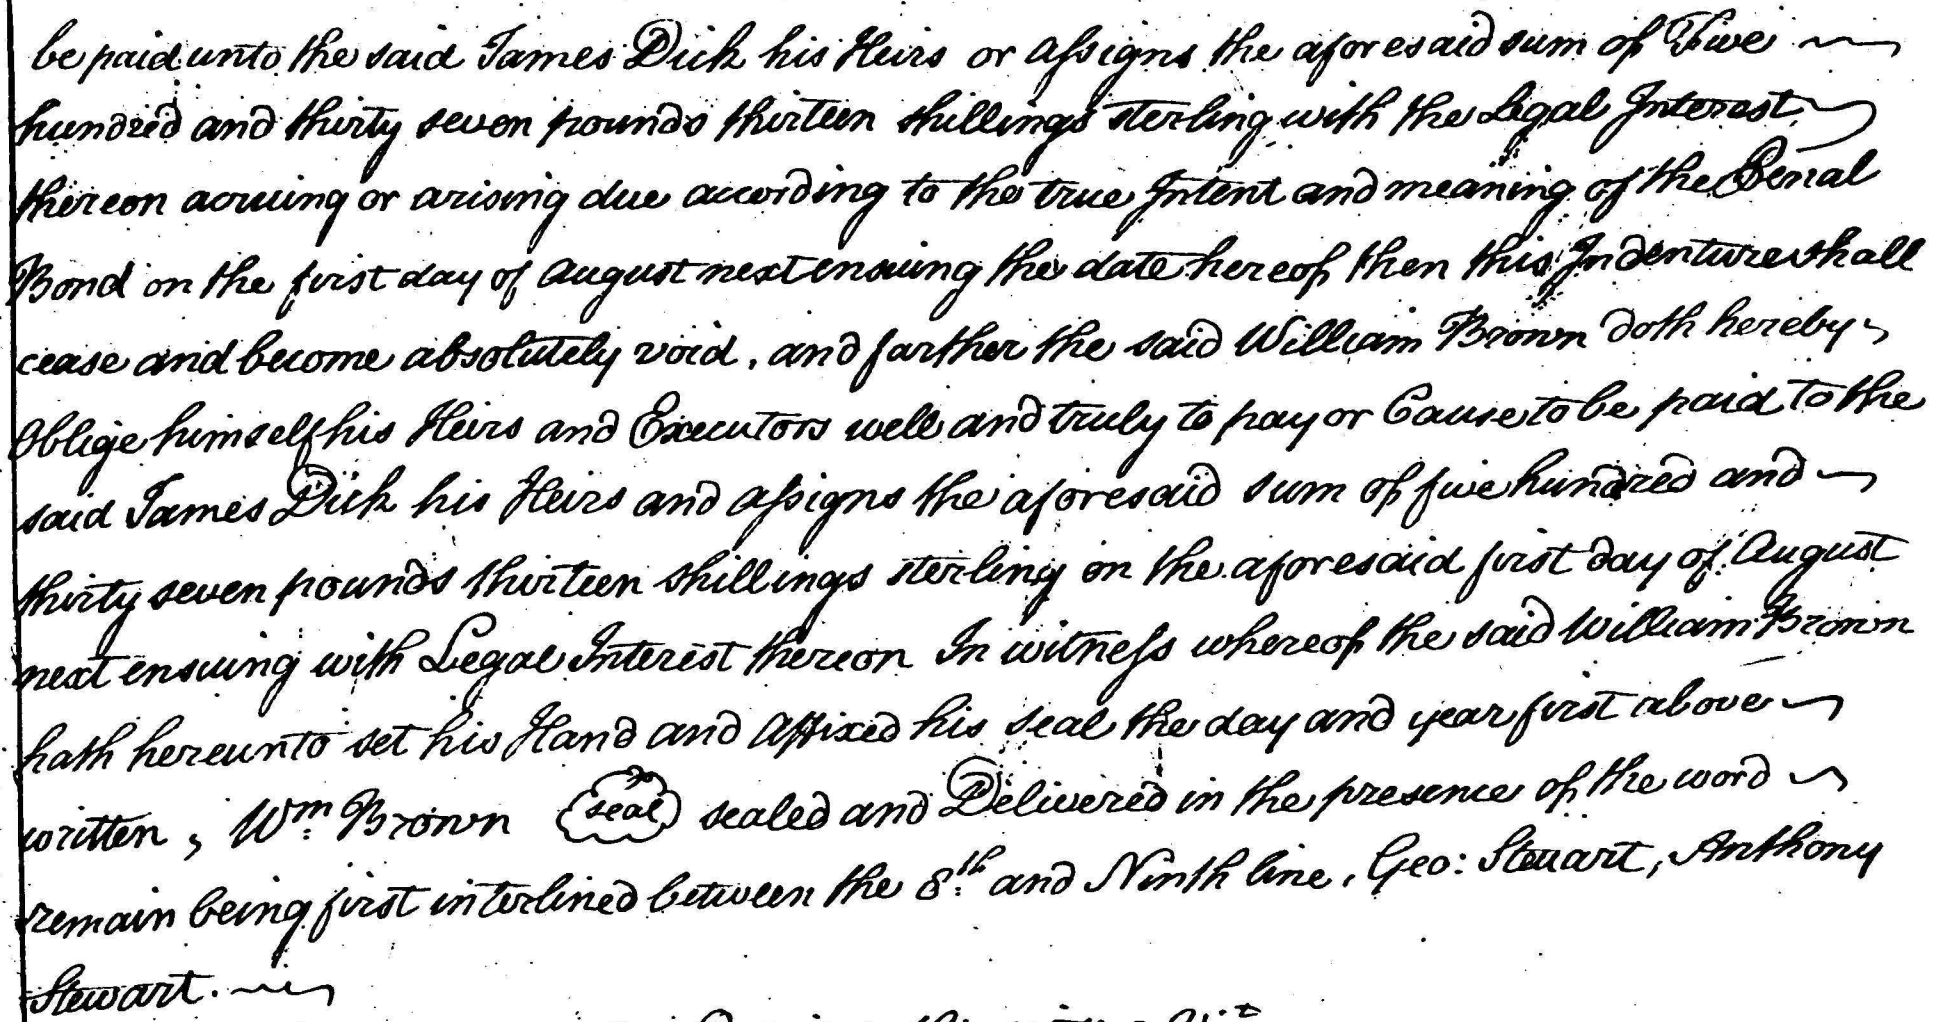 be paid unto the said James Dick his Heirs or assigns the aforesaid sum of Five
hundred and thirty seven pounds thirteen shillings sterling with the Legal Interest
thereon acruing or arising due according to the true Intent and meaning of the Penal
Bond on the first day of August next ensuing the date hereof then this Indenture shall
cease and become absolutely void, and farther the said William Brown doth hereby
Oblige himself his Heirs and Executors well and truly to pay or Cause to be paid to the
said James Dick his Heirs and assigns the aforesaid sum of five hundred and
thirty seven pounds thirteen shillings sterling on the aforesaid first day of August
next ensuing with Legal Interest thereon In witness whereof the said William Brown
hath hereunto set his Hand and Affixed his seal the day and year first above
written, Wm Brown seal sealed and Delivered in the presence of the word
remain being first interlined between the 8th and Ninth line, Geo: Steuart, Anthony
Stewart.